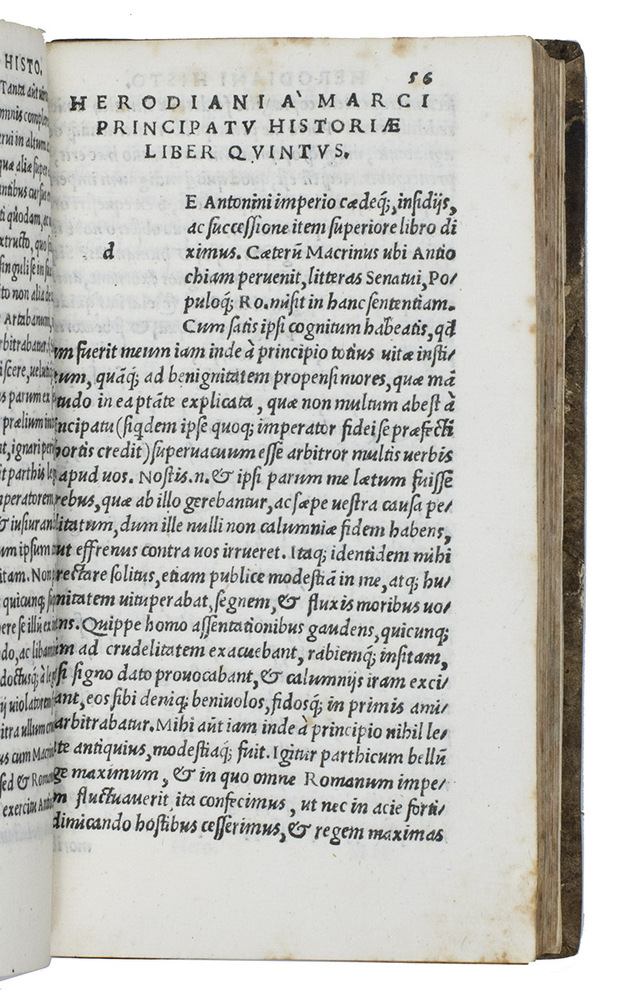 HISTO.
Tanta aūt
omnis
erui in altum
quæ aliæ super
antibus
quodam, ac
xtructo, quo
singuli se in
ito non alia de
Artabanum,
rbitrabatur
iscere, uelut
us parum ex
prælium
nt, ignari
it parthis
mperatorem
& iusiuran
um ipsum
itam. Non
quicunq;
ere se illū
do, ac
doctusq; à
ij uiolatorem
itra ullum
us cum Macri
sed & Roma
exercitu
56
HERODIANI A` MARCI
PRINCIPATV HISTORIÆ
LIBER QVINTVS.
d
E Antonini imperio cædeq;, insidijs,
ac successione item superiore libro di
ximus. Cæterū Macrinus ubi Antio
chiam peruenit, litteras Senatui, Po/
puloq; Ro. misit in hanc sententiam.
Cum satis ipsi cognitum habeatis, qd
um fuerit meum iam inde à principio totius uitæ insti/
tum, quāq; ad benignitatem propensi mores, quæ mā
tudo in ea ptāte explicata, quæ non multum abest à
ncipatu (siqdem ipse quoq; imperator fidei se præfecti
hortis credit) superuacuum esse arbitror multis uerbis
apud uos. Nostis.n. & ipsi parum me lætum fuisse
rebus, quæ ab illo gerebantur, ac sæpe uestra causa pe/
litatum, dum ille nulli non calumniæ fidem habens,
ut effrenus contra uos irrueret. Itaq; identidem mihi
rectare solitus, etiam publice modestiā in me, atq; hu/
nitatem uituperabat, segnem, & fluxis moribus uo/
ns. Quippe homo assentationibus gaudens, quicunq;
im ad crudelitatem exacuebant, rabiemq; insitam,
si signo dato prouocabant, & calumnijs iram exci/
ant, eos sibi deniq; beniuolos, fidosq; in primis ami/
arbitrabatur. Mihi aūt iam inde à principio nihil le/
te antiquius, modestiaq; fuit. Igitur parthicum bellū
ge maximum, & in quo omne Romanum impe/
m fluctuauerit ita confecimus, ut nec in acie forti/
dimicando hostibus cesserimus, & regem maximas